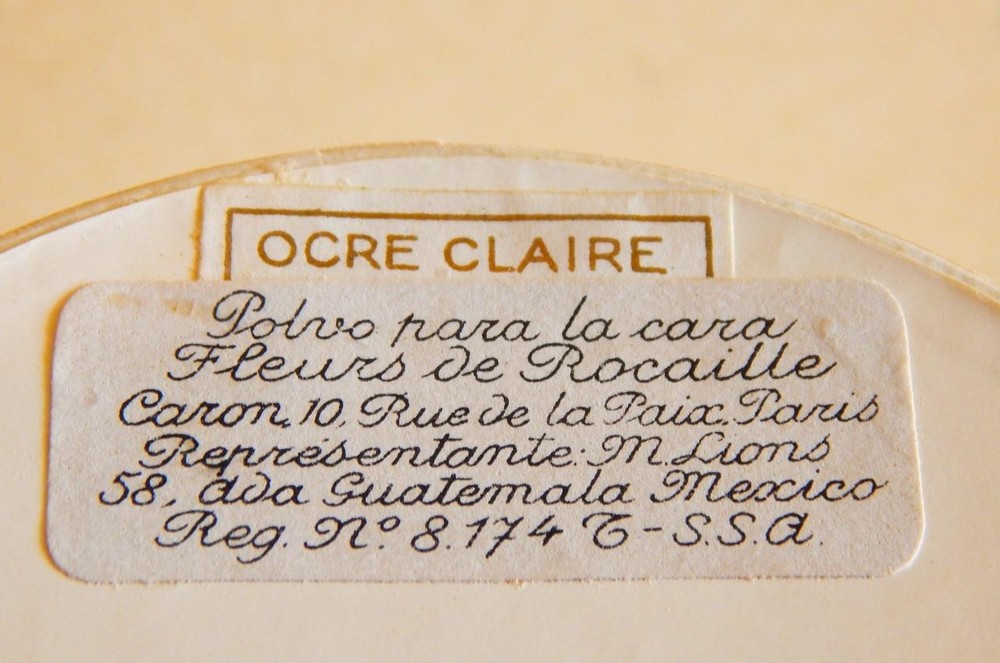 OCRE CLAIRE
Polvo para la cara
Fleurs de Rocaille
Caron, 10, Rue de la Paix. Paris
Représentante: M. Lions
58, Ava Guatemala Mexico
Reg. Nº 8.174 T-S.S.A.